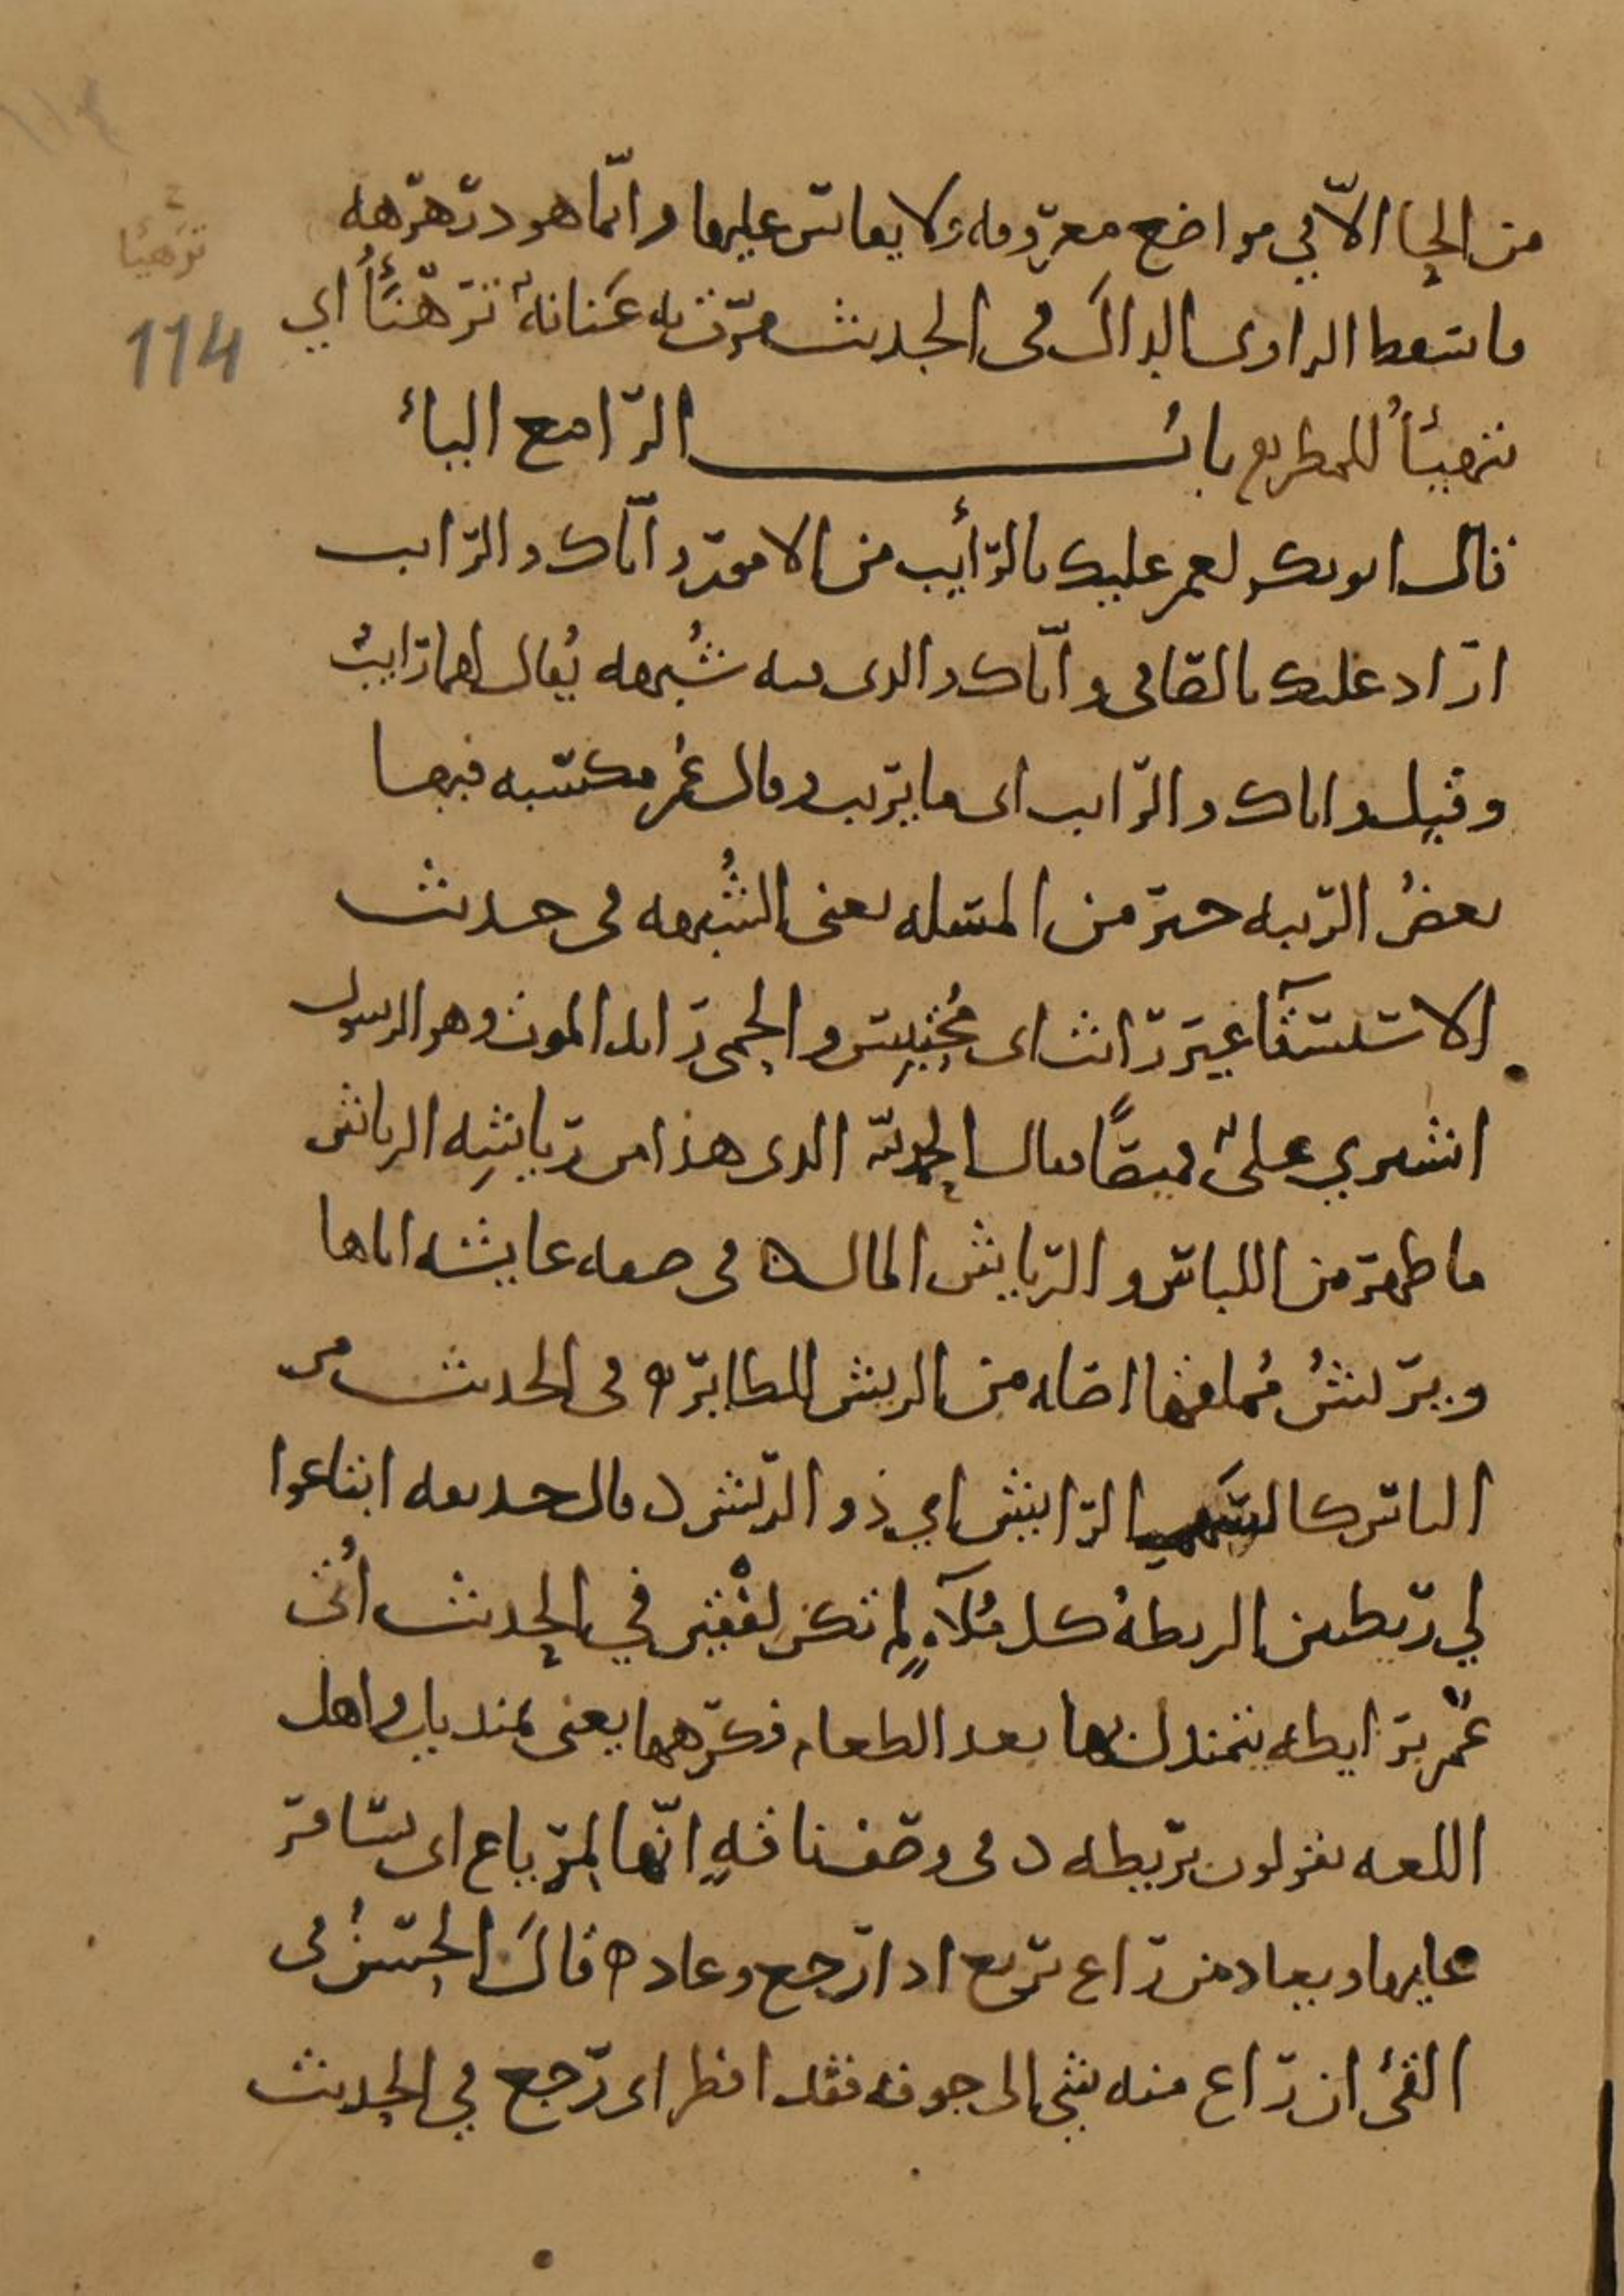 من الحا الا في مواضع معروفه ولا يقاس عليها وانما هو درهرهه
فاسقط الراوى الدال فى الحديث مرت به عنانة ترهيأ اي
تتهيأ للمطر باب الرا مع الياء
قال ابو بكر لعمر عليك بالرأيب من الامور واياك والرايب
اراد عليك بالصافى واياك والدى فيه شبهه يقال لهما رايب
وقيل واياك والرايب اى ما يريب وقال عمر مكسبه فيها
بعض الريبه خير من المسله يعنى الشبهه فى حديث
الاستسقآ غير رايث اى محتبس والحمى رايد الموت وهو الرسول
اشترى علىٌ قميصًا فقال الحمدلله الدى هذا من رياشِه الرياش
ما ظهر من اللباس والرياش المال ه فى صفه عايشه اباها
ويريش مملقها اصله من الريش للطاير ه فى الحديث من
الناس كالسهم الرايش اي ذو الريش ه قال حديفه ابتاعوا
لي ريطتين الريطه كل ملآءٍ لم تكن لفقين في الحديث اُتى
عمر برايطه يتمندل بها بعد الطعام فكرهها يعنى بمنديل واهل
اللغه يقولون بريطه ه فى وصف ناقهٍ انها لمرياع اى يسافر
عليها ويعاد من راع يريع ادا رجع وعاد ه قال الحسن فى
القئ ان راع منه شى الى جوفه فقد افطر اى رجع في الحديث
ترهيأ
114
١١٤